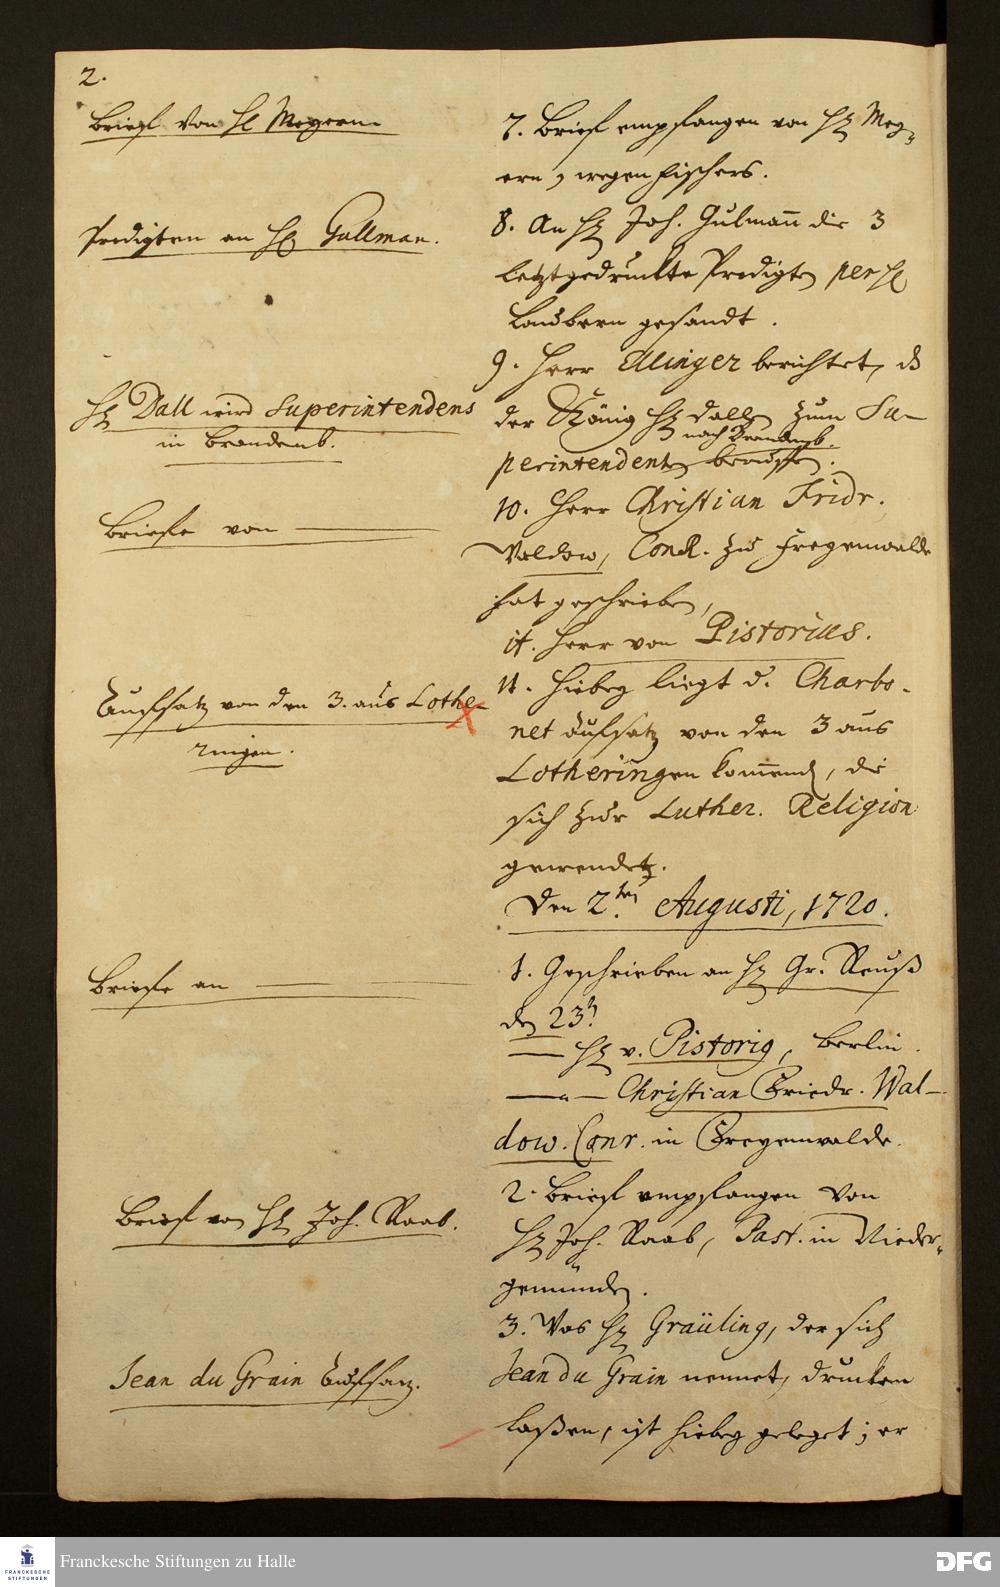 2.
Brief von H. Meyern.
7. Brief empfangen von H. Mey-
ern, wegen Fischers.
Predigten an H. Gullman.
8. An H. Joh. Gulman̄ die 3
letztgedruckte Predigten per H.
Laubern gesandt.
9. Herr Elinger berichtet, daß
H. Dall wird Superintendens
in Brandenb.
der König H. Dallen zum Su-
nach Brandenb.
perintendenten beruffen.
10. Herr Christian Fridr.
Briefe von
Waldow, ConR. zu Freyenwalde
hat geschrieben,
it. Herr von Pistorius.
Auffsatz von den 3. aus Lothe-
ringen.
11. Hiebey liegt d. Charbo-
net Aufsatz von den 3 aus
Lotheringen kom̄enden, die
sich zur Luther. Religion
gewendet.
Den 2.ten Augusti, 1720.
Briefe an
1. Geschrieben an H. Gr. Reuß
den 23.
H. v. Pistorig, Berlin.
Christian Friedr. Wal-
dow. Conr. in Freyenwalde.
Brief von H. Joh. Raab.
2. Brief empfangen von
H. Joh. Raab, Past. in Nieder-
gemünden.
3. Was H. Gräuling, der sich
Jean du Grain Auffsaz.
Jean du Grain nennet, drucken
laßen, ist hiebey geleget; er
Franckesche Stiftungen zu Halle
FRANCKESCHE
STIFTUNGEN
DFG